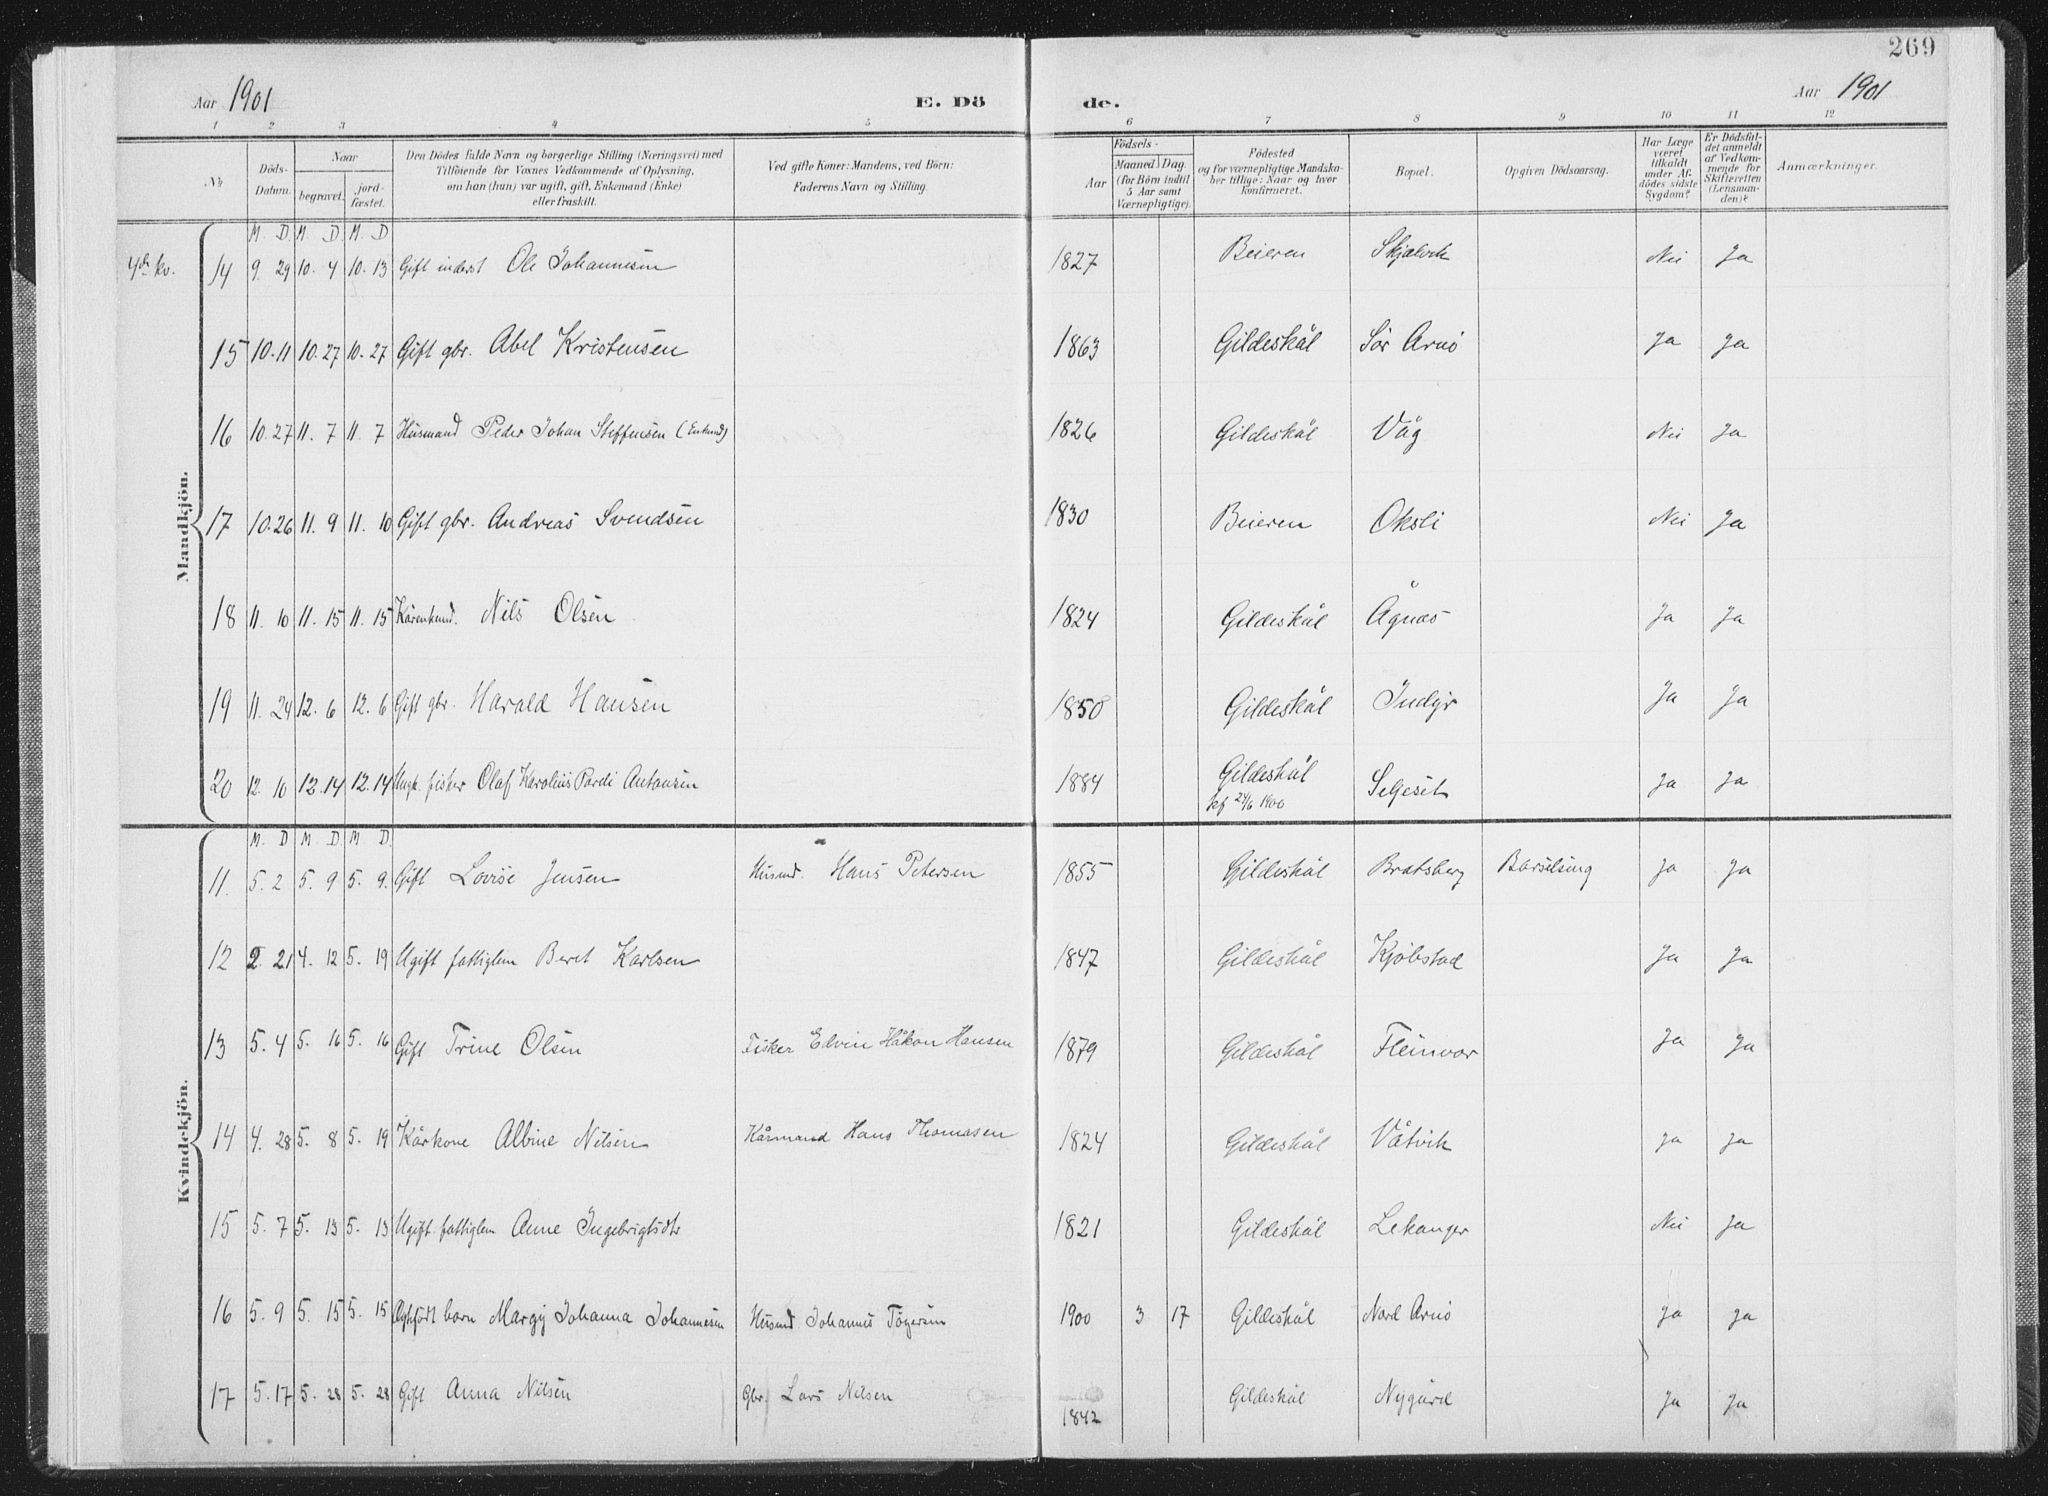 269
Aar 1901 E. Dö de. Aar 1901
1 2 3 4 5 6 7 8 9 10 11 12
No. Döds-Datum. Naar begravet. jord-fæstet. Den Dödes fulde Navn og borgerlige Stilling (Næringsvei) med Tilföiende for Voxnes Vedkommende af Oplysning, om han (hun) var ugift, gift, Enkemand (Enke) eller fraskilt. Ved gifte Koner: Mandens, ved Börn: Faderens Navn og Stilling. Födsels- Aar Maaned Dag. (for Börn indtil 5 Aar samt Værnepligtige). Födested og for værnepligtige Mandskaber tillige: Naar og hvor konfirmeret. Bopæl. Opgiven Dödsaarsag. Har Læge været tilkaldt under Afdödes sidste Sygdom? Er Dödsfaldet anmeldt af Vedkommende for Skifteretten (Lensmanden)? Anmærkninger.
Mandkjön.
M. D. M. D. M. D
4de kv. 14 9. 29 10. 4 10. 13 Gift inderst Ole Johannesen 1827 Beieren Skjelvik Nei Ja
15 10. 11 10. 27 10. 27 Gift gbr. Abel Kristensen 1863 Gildeskål Sör Arnö Ja Ja
16 10. 27 11. 7 11. 7 Husmand Peder Johan Steffensen (Enkmd) 1826 Gildeskål Våg Nei Ja
17 10. 26 11. 9 11. 10 Gift gbr. Andreas Svendsen 1830 Beieren Oksli Nei Ja
18 11. 10 11. 15 11. 15 Kårenkmd. Nils Olsen 1824 Gildeskål Ågnæs Ja Ja
19 11. 24 12. 6 12. 6 Gift gbr. Harald Hansen 1850 Gildeskål Indyr Ja Ja
20 12. 10 12. 14 12. 14 Ungk. fisker Olaf Karolius Pardi Antonsen 1884 Gildeskål Seljeset Ja Ja
kf 24/6 1900
Kvindekjön.
M. D M. D. M D.
11. 5. 2 5. 9 5. 9. Gift Lovise Jensen Husmd. Hans Petersen 1855 Gildeskål Bratsberg Barselseng Ja Ja
12 2. 21 4. 12 5. 19 Ugift fattiglem Beret Karlsen 1847 Gildeskål Kjöbstad Ja Ja
13 5. 4 5. 16 5. 16 Gift Trine Olsen Fisker Edvin Håkon Hansen 1879 Gildeskål Fleinvær Ja Ja
14 4. 28 5. 8 5. 19 Kårkone Albine Nilsen Kårmand Hans Thomasen 1824 Gildeskål Våtvik Ja Ja
15 5. 7 5. 13 5. 13 Ugift fattiglem Anne Ingebrigtsdtr 1821 Gildeskål Lekanger Nei Ja
16 5. 9 5. 15 5. 15 Ægtfödt barn Margij Johanna Johannesen Husmd Johannes Tögersen 1900 3 17 Gildeskål Nord Arnö Ja Ja
17 5. 17 5. 28 5. 28 Gift Anna Nilsen Gbr. Lars Nilsen 1842 Gildeskål Nygård Ja Ja